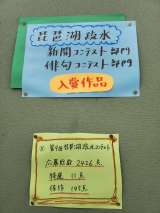 琵琶湖疏水
新聞コンテスト部門
俳句コンテスト部門
入賞作品
琵琶湖疏水コンテスト
応募総数 2426点
特選 11点
佳作 105点